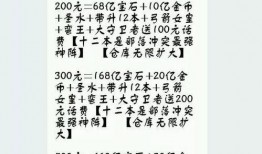 200元=68亿宝石+10亿金币
+圣水+带升12本+弓箭女皇
+蛮王+大守卫者送100元话
费【十二本是部落冲突最强
神阵】【仓库无限扩大】
300元=168亿宝石+20亿金
币+圣水+带升12本+弓箭女
皇+蛮王+大守卫者+送200
元话费【十二本是部落冲突
最强神阵】【仓库无限扩
大】